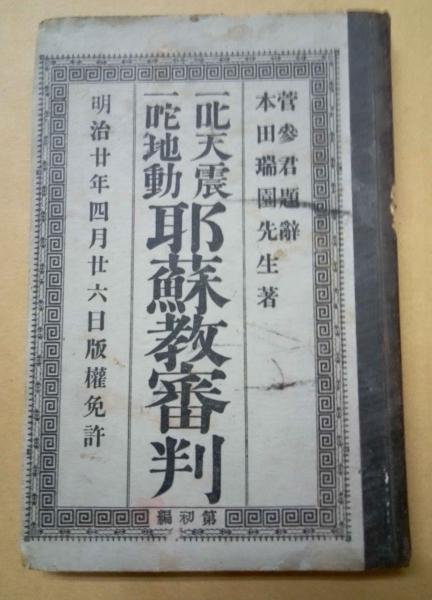 菅參君題辭
本田瑞圓先生著
一叱天震
一咤地動
耶蘇教審判
明治廿年四月廿六日版權免許
第初編